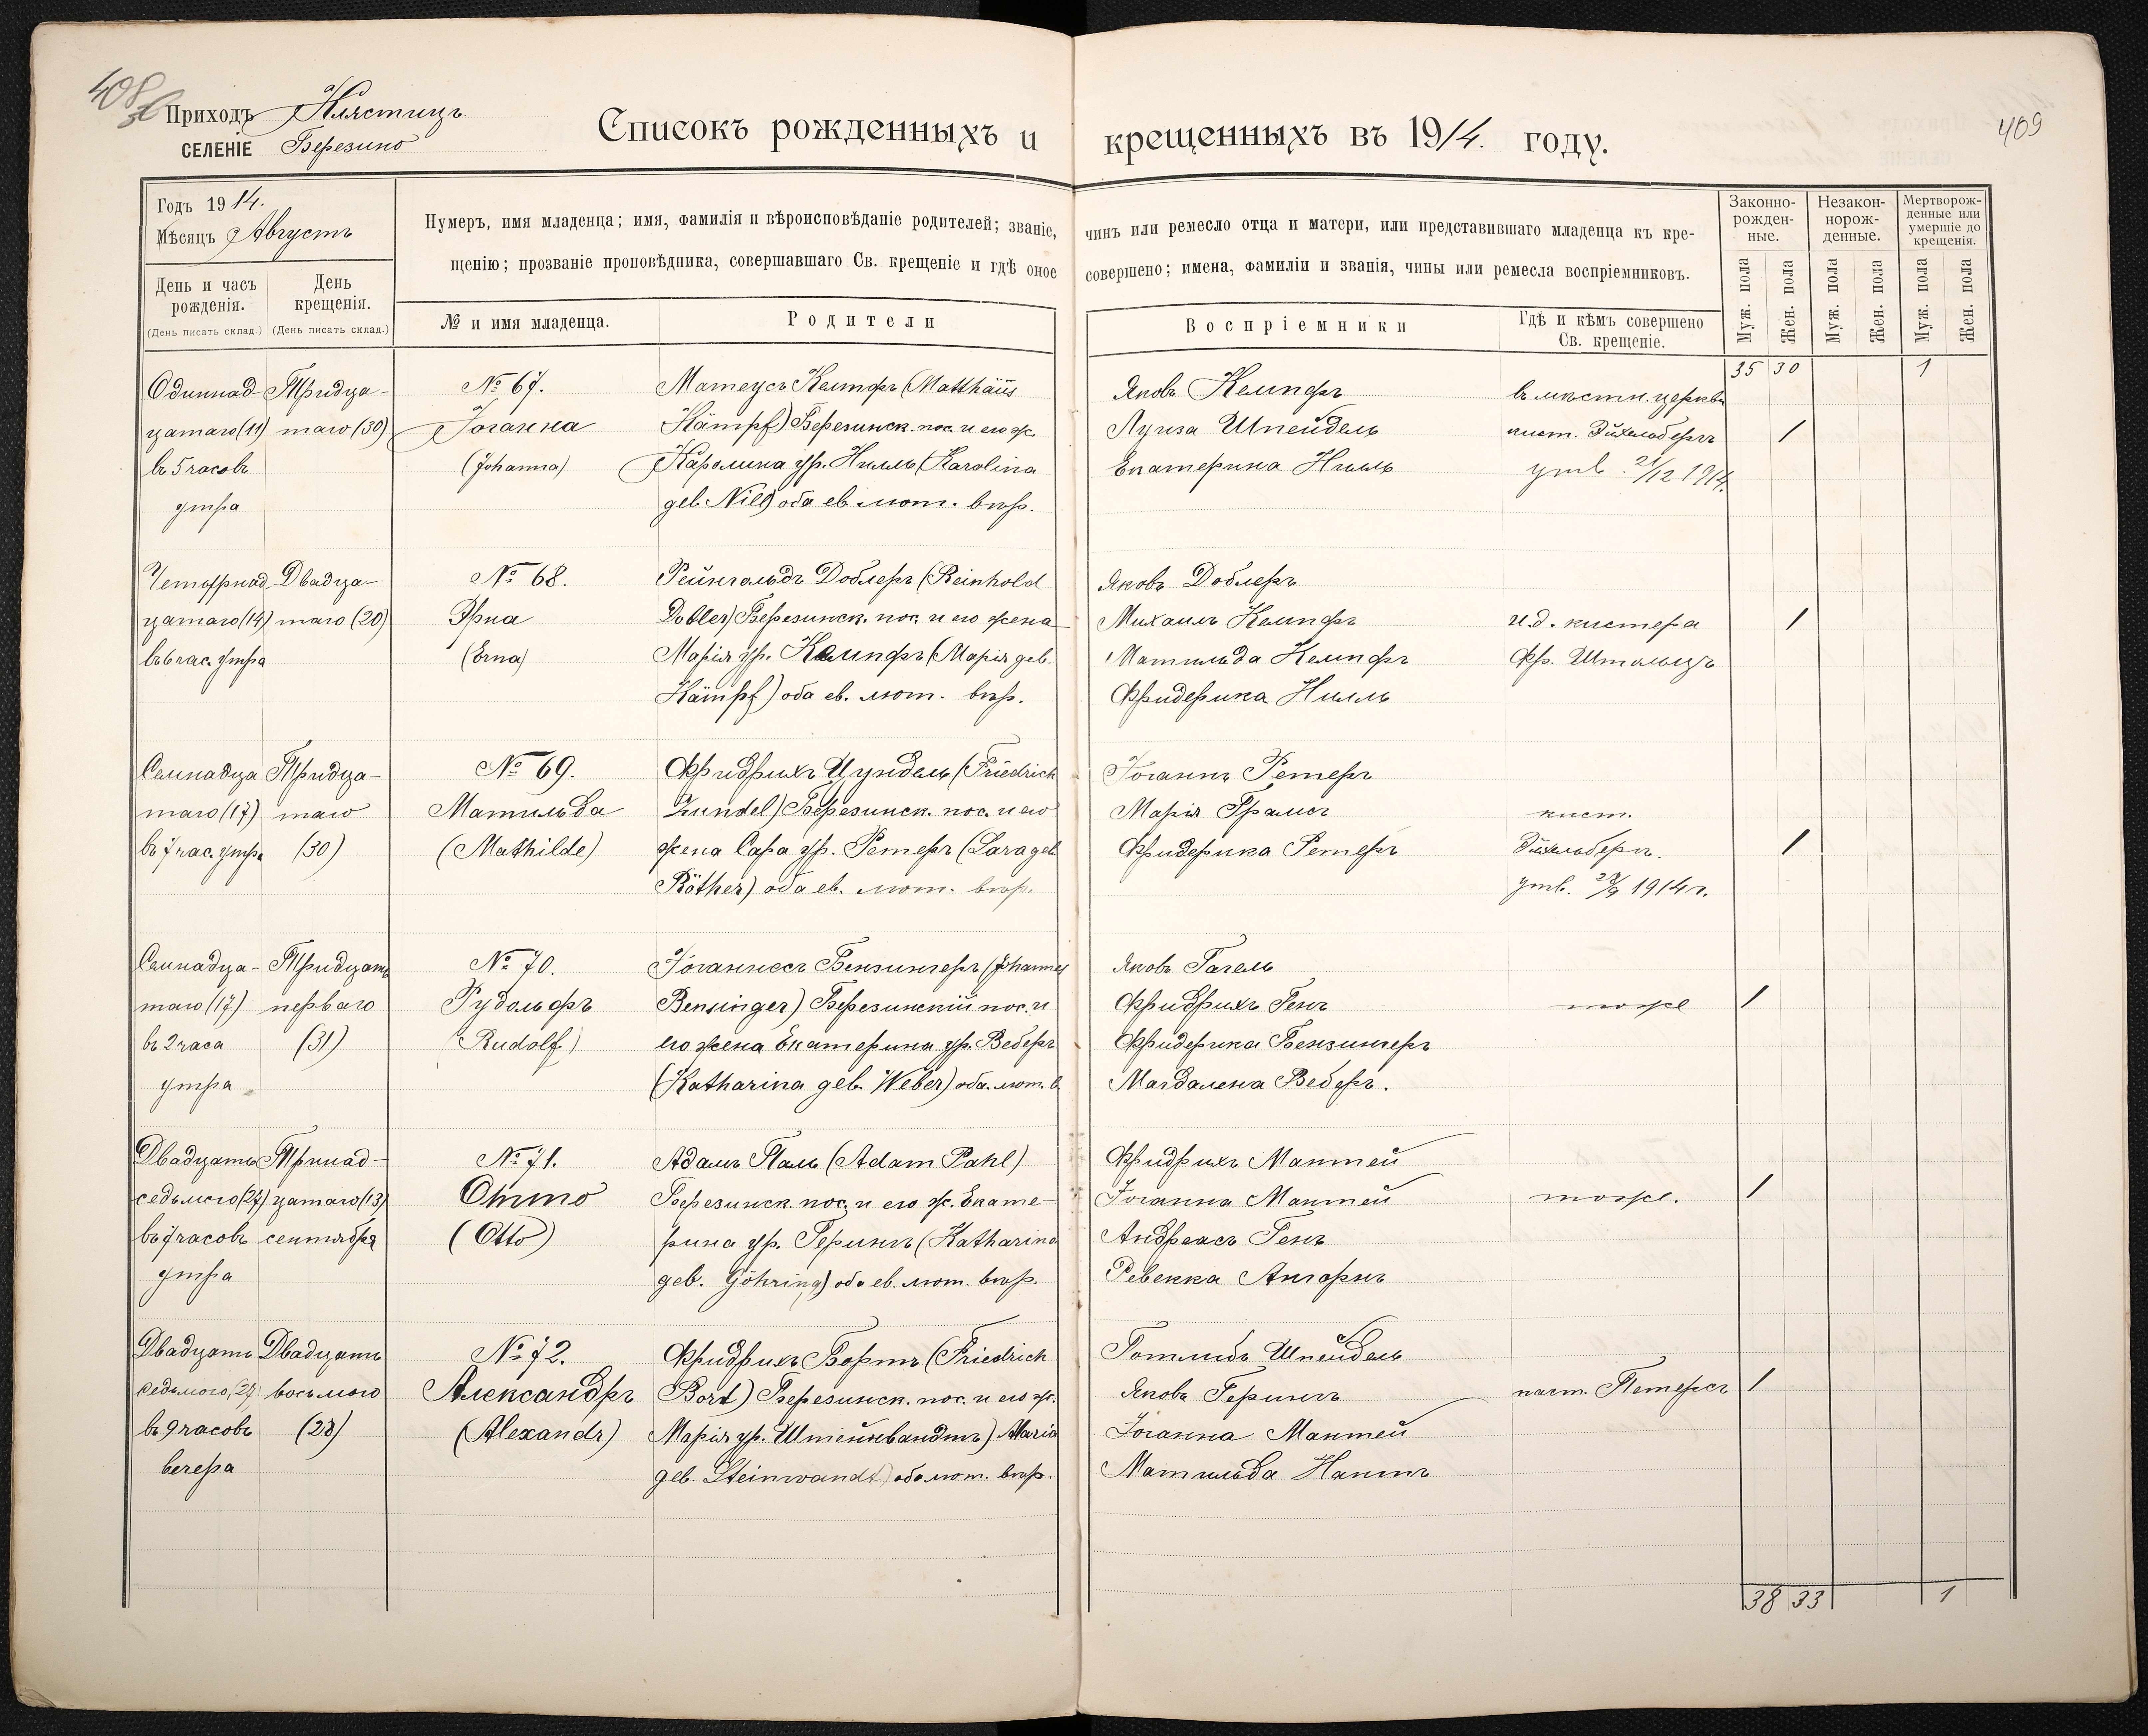 408
Приходъ Клястицъ
СЕЛЕНІЕ Березино
Списокъ рожденныхъ и крещенныхъ въ 1914. году.
409
Годъ 1914.
Мѣсяцъ Августъ
День и часъ рожденія.
(День писать склад.)
День крещенія.
(День писать склад.)
Нумеръ, имя младенца; имя, фамилія и вѣроисповѣданіе родителей; званіе, чинъ или ремесло отца и матери, или представившаго младенца къ кре-
щенію; прозваніе проповѣдника, совершавшаго Св. крещеніе и гдѣ оное совершено; имена, фамиліи и званія, чины или ремесла воспріемниковъ.
№ и имя младенца.
Родители
Воспріемники
Гдѣ и кѣмъ совершено
Св. крещеніе.
Законно-
рожден-
ные.
Незакон-
норож-
денные.
Мертворож-
денные или
умершіе до
крещенія.
Муж. пола
Жен. пола
Муж. пола
Жен. пола
Муж. пола
Жен. пола
35 30 1
Одиннад-
цатаго (11)
въ 5 часовъ
утра
Тридца-
таго (30)
№ 67.
Іоганна
(Johanna)
Матеусъ Кемпфъ (Matthäus
Kämpf) Березинск. пос. и его ж.
Каролина ур. Нилль (Karolina
geb. Nill) оба ев. лют. вѣр.
Яковъ Кемпфъ
Луиза Шпейдель
Екатерина Нилль
въ мѣстн. церкви
кист. Эйхельбергъ
утв. 21/12 1914.
1
Четырнад-
цатаго (14)
въ 6 час. утра
Двадца-
таго (20)
№ 68.
Эрна
(Erna)
Рейнгольдъ Доблеръ (Reinhold
Dobler) Березинск. пос. и его жена
Марія ур. Кемпфъ (Марія geb.
Kämpf) оба ев. лют. вѣр.
Яковъ Доблеръ
Михаилъ Кемпфъ
Матильда Кемпфъ
Фридерика Нилль
и.д. кистера
Фр. Штольцъ
1
Семнадца
таго (17)
въ 7 час. утра
Тридца-
таго
(30)
№ 69.
Матильда
(Mathilde)
Фридрихъ Цундель (Friedrich
Zundel) Березинск. пос. и его
жена Сара ур. Ретеръ (Sara geb.
Röther) оба ев. лют. вѣр.
Іоганнъ Ретеръ
Марія Грамсъ
Фридерика Ретеръ
кист.
Эйхельбергъ.
утв. 1914 г.
1
Семнадца-
таго (17)
въ 2 часа
утра
Тридцать
перваго
(31)
№ 70.
Рудольфъ
(Rudolf)
Іоганнесъ Бензингеръ (Johannes
Bensinger) Березинскій пос. и
его жена Екатерина ур. Веберъ
(Katharina geb. Weber) оба лют. в
Яковъ Гагель
Фридрихъ Генъ
Фридерика Бензингеръ
Магдалена Веберъ.
тоже
1
Двадцать
седьмого (27)
въ 7 часовъ
утра
Тринад-
цатаго (13)
сентября
№ 71.
Отто
(Otto)
Адамъ Паль (Adam Pahl)
Березинск. пос. и его ж. Екате-
рина ур. Герингъ (Katharina
geb. Göhring) оба ев. лют. вѣр.
Фридрихъ Мантей
Іоганна Мантей
Андреасъ Генъ
Ревекка Ангорнъ
тоже.
1
Двадцать
седьмого (27)
въ 9 часовъ
вечера
Двадцать
восьмого
(28)
№ 72.
Александръ
(Alexandr)
Фридрихъ Бортъ (Friedrich
Bort) Березинск. пос. и его ж.
Марія ур. Штейнвандтъ) Maria
geb. Steinwandt) оба лют. вѣр.
Готлибъ Шпейдель
Яковъ Герингъ
Іоганна Мантей
Матильда Нантъ
паст. Петерсъ
1
38 33 1